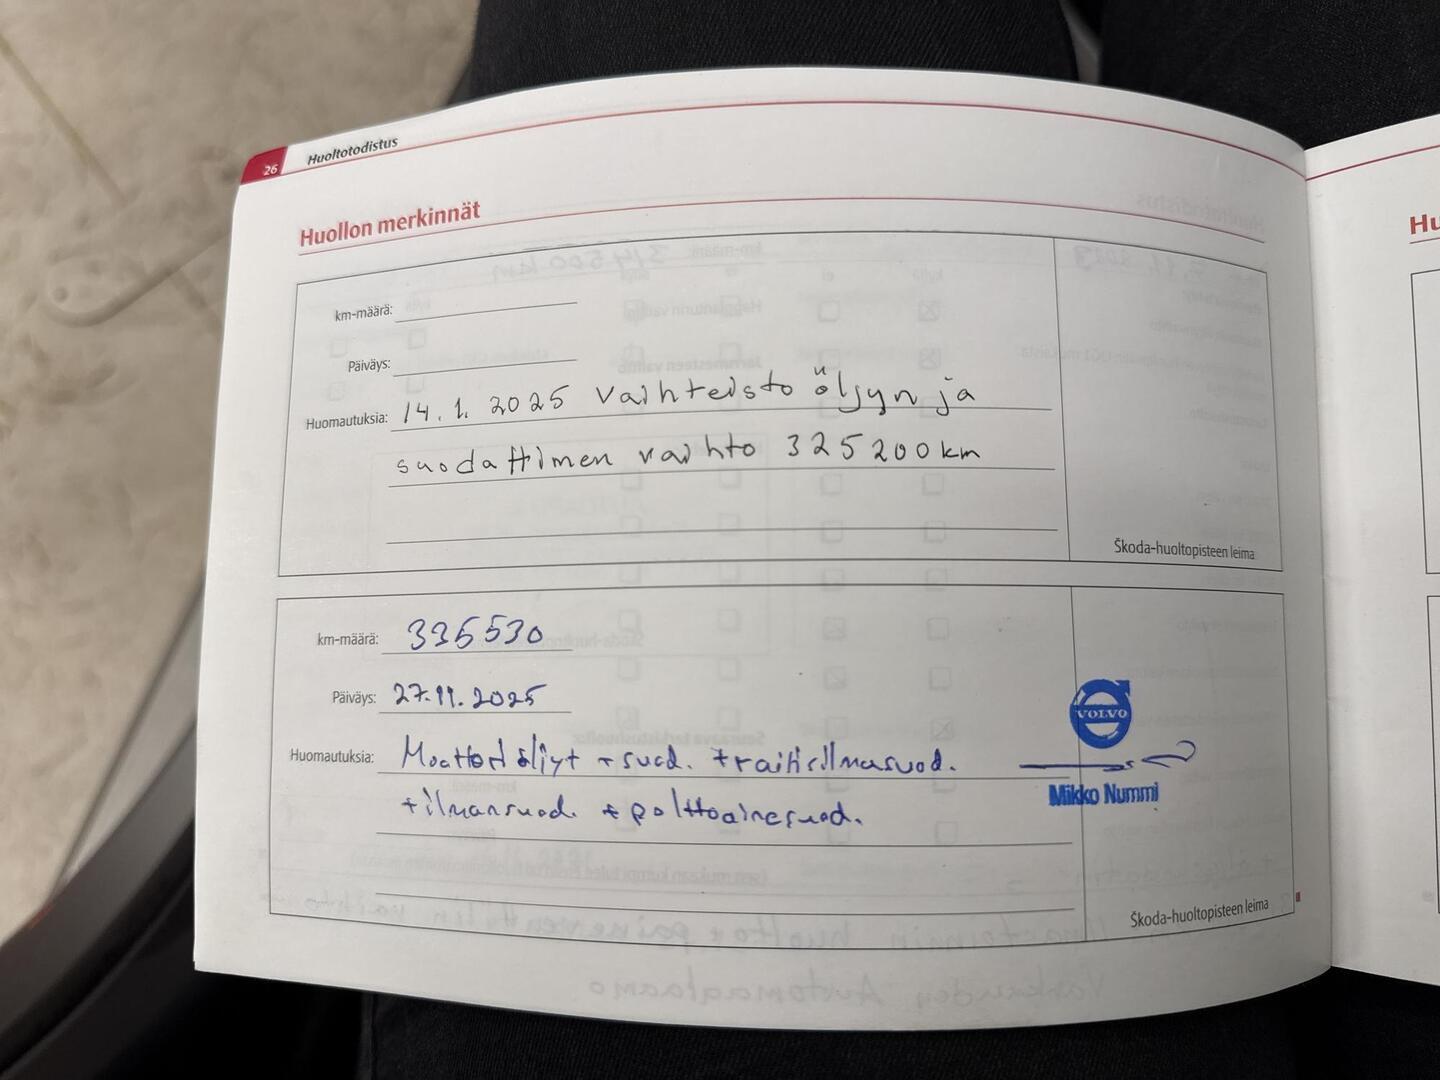 26 Huoltotodistus
Huollon merkinnät
km-määrä:
Päiväys:
Huomautuksia: 14.1.2025 Vaihteisto öljyn ja
suodattimen vaihto 325200km
Škoda-huoltopisteen leima
km-määrä: 335530
Päiväys: 27.11.2025
Huomautuksia: Moottoriöljyt + suod. + raitisilmasuod.
+ ilmansuod. + polttoainesuod.
VOLVO
Mikko Nummi
Škoda-huoltopisteen leima
Hu